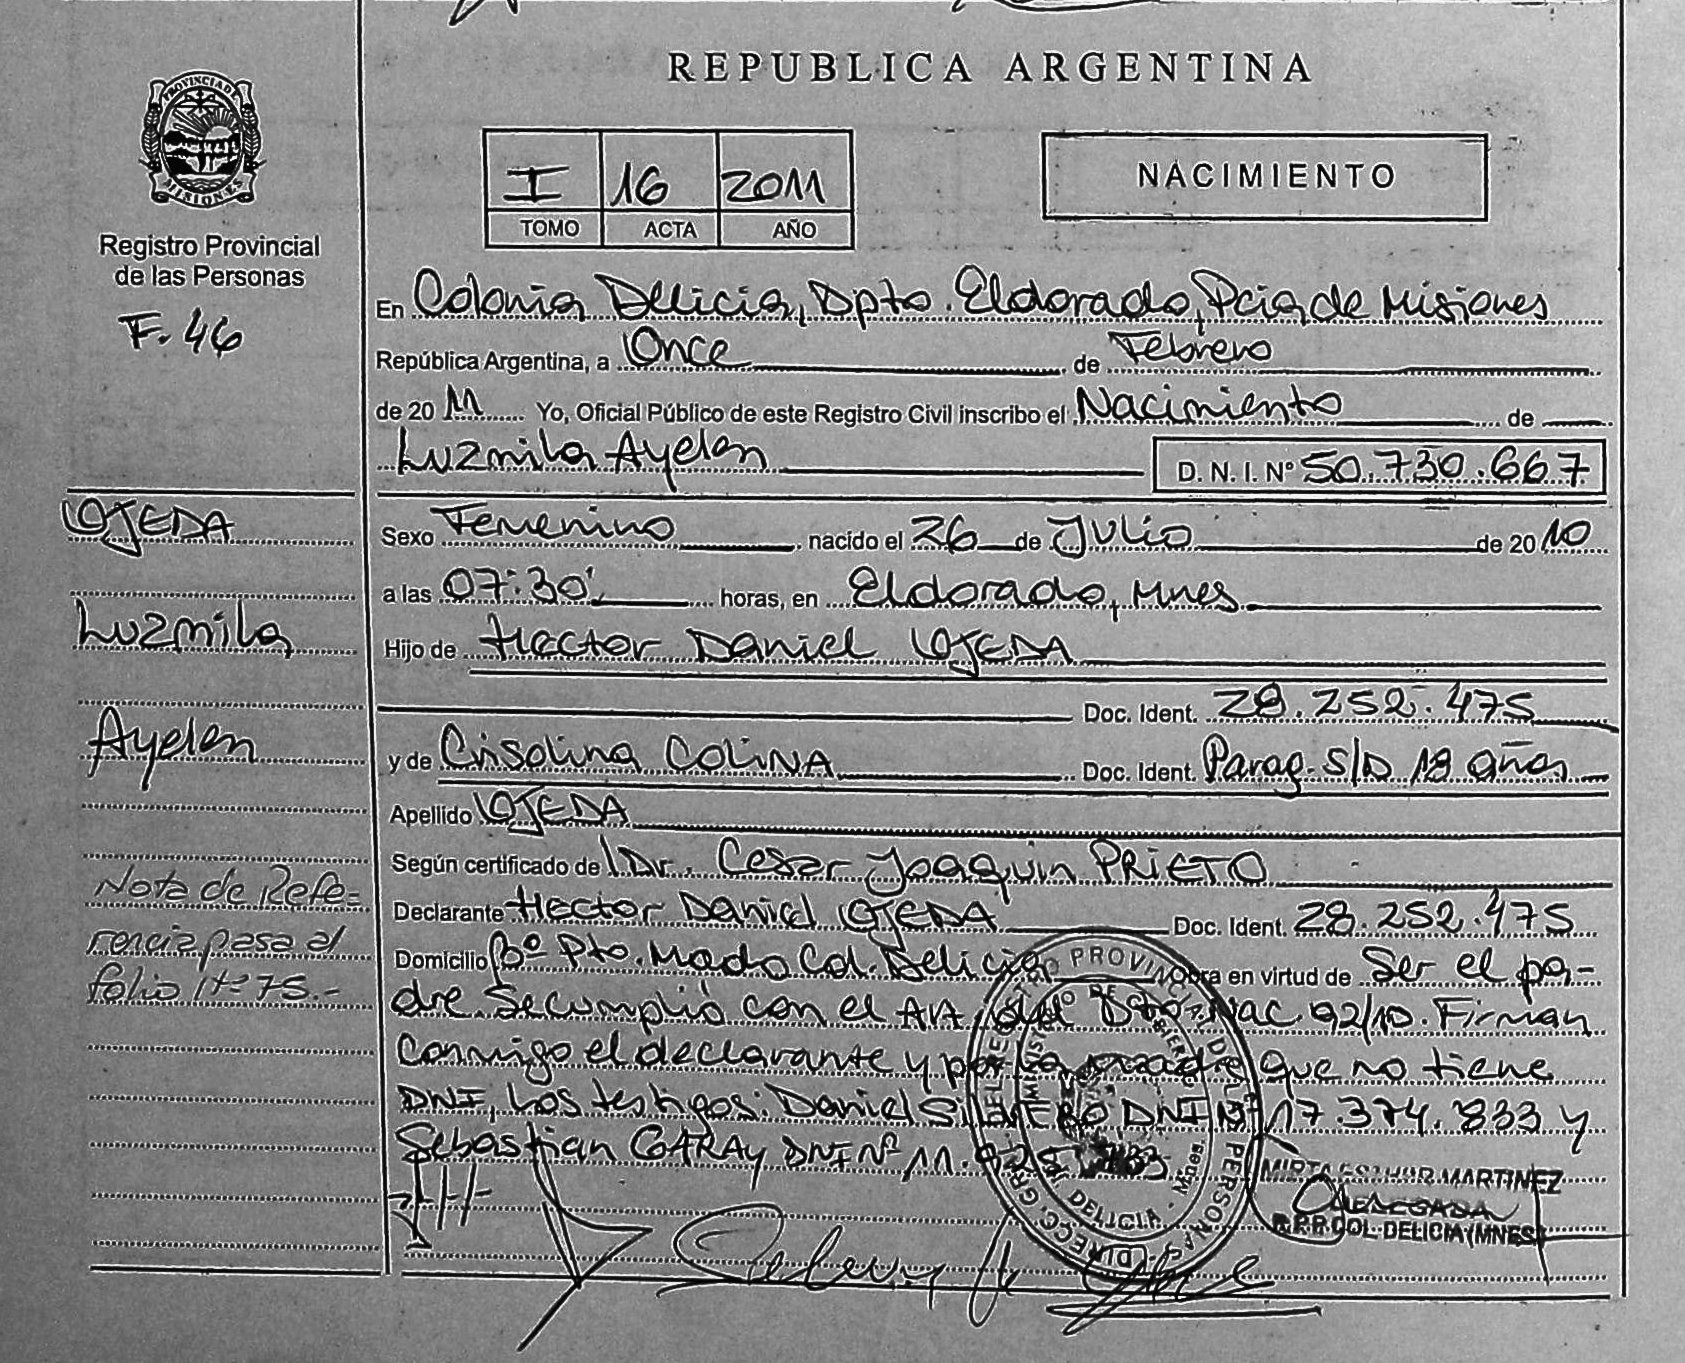 REPUBLICA ARGENTINA
PROVINCIA DE MISIONES
I 16 2011
TOMO ACTA AÑO
NACIMIENTO
Registro Provincial
de las Personas
F. 46
En Colonia Delicia, Dpto. Eldorado, Pcia de Misiones
República Argentina, a Once de Febrero
de 2011 Yo, Oficial Público de este Registro Civil inscribo el Nacimiento de
Luzmila Ayelen D. N. I. Nº 50.730.667
OJEDA
Luzmila
Ayelen
Nota de Refe=
rencia pasa al
folio Nº 75.-
Sexo Femenino nacido el 26 de Julio de 2010
a las 07:30' horas, en Eldorado, Mnes
Hijo de Hector Daniel OJEDA
Doc. Ident. 28.252.475
y de Crisolina COLINA Doc. Ident. Parag. s/D 18 años
Apellido OJEDA
Según certificado de Dr. Cesar Joaquin PRIETO
Declarante Hector Daniel OJEDA Doc. Ident. 28.252.475
Domicilio Bº Pto. Mado Col. Delicia Obra en virtud de Ser el pa-
dre. Se cumplió con el del Dto Nac. 92/10. Firman
conmigo el declarante y por la madre que no tiene
DNI, Los testigos: Daniel DNI Nº 17.374.833 y
Sebastian GARAY DNI Nº 11.
MIRTA ESTHER MARTINEZ
DELEGADA
R.P.P. COL. DELICIA (MNES)